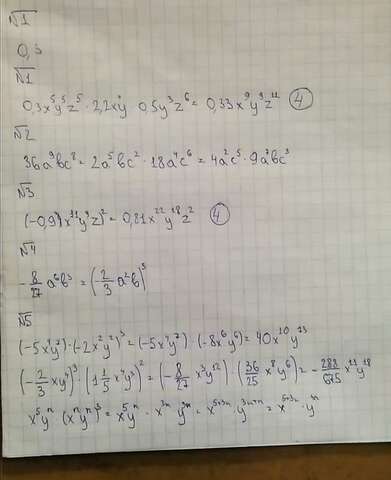 √1
0,3
√1
0,3x⁵y⁵z⁵ · 2,2x⁴y · 0,5y³z⁶ = 0,33x⁹y⁹z¹¹ ④
√2
36a⁹bc⁸ = 2a⁵bc² · 18a⁴c⁶ = 4a²c⁵ · 9a⁷bc³
√3
(-0,9)(x¹¹y⁹z)² = 0,81x²²y¹⁸z² ④
√4
-8/27 a⁶b³ = (-2/3 a²b)³
√5
(-5x⁴y⁷) · (-2x²y²)³ = (-5x⁴y⁷) · (-8x⁶y⁶) = 40x¹⁰y¹³
(-2/3 xy⁴)³ · (1 1/5 x⁴y³)² = (-8/27 x³y¹²) · (36/25 x⁸y⁶) = -288/675 x¹¹y¹⁸
x⁵yⁿ (xⁿyⁿ)³ = x⁵yⁿ · x³ⁿ y³ⁿ = x⁵⁺³ⁿ y³ⁿ⁺ⁿ = x⁵⁺³ⁿ · y⁴ⁿ